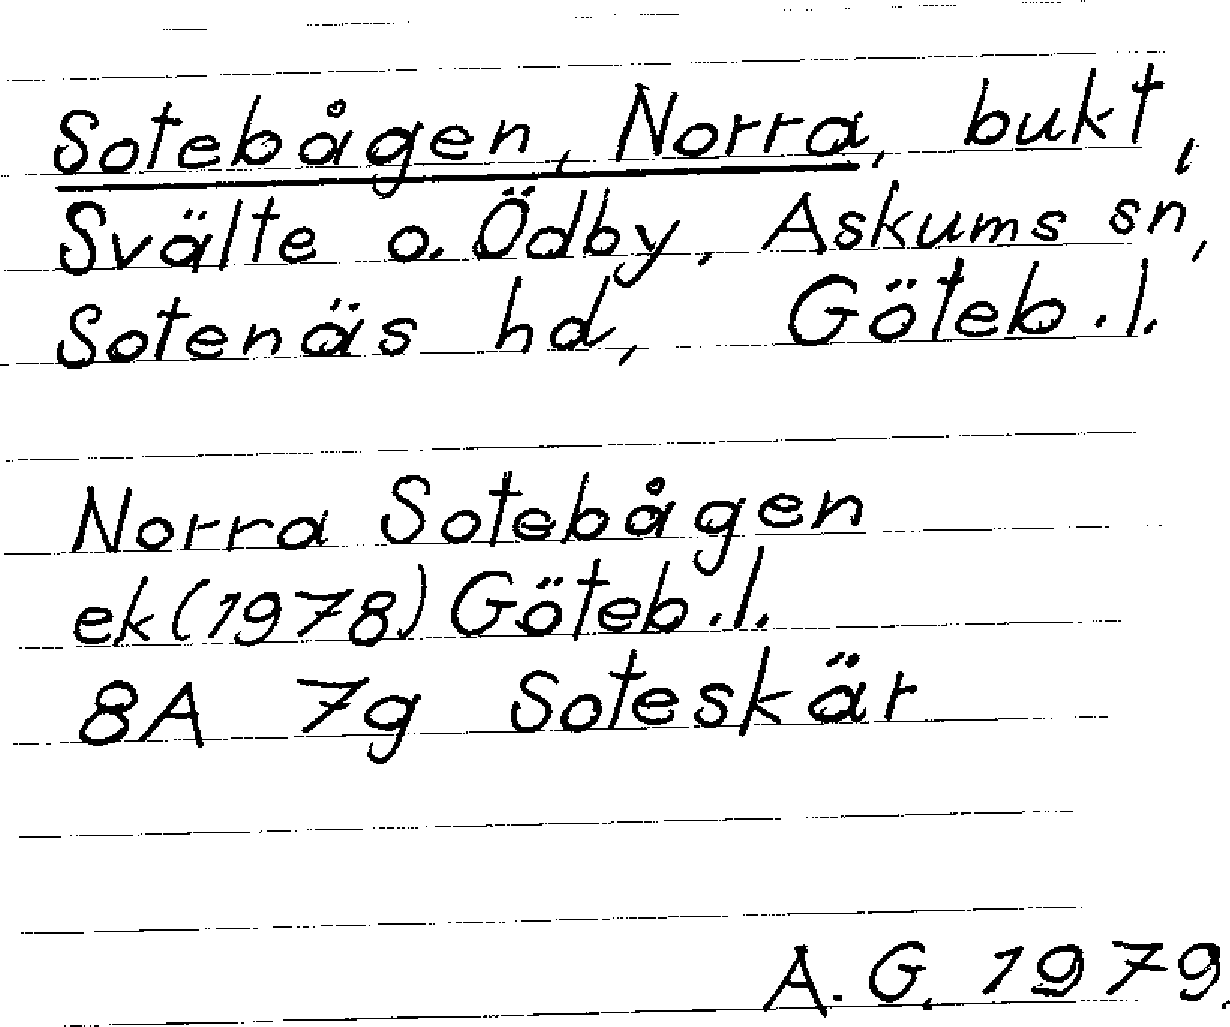 Sotebågen, Norra, bukt,
Svälte o. Ödby, Askums sn,
Sotenäs hd, Göteb. l.
Norra Sotebågen
ek (1978) Göteb. l.
8A 7g Soteskär
A. G. 1979.